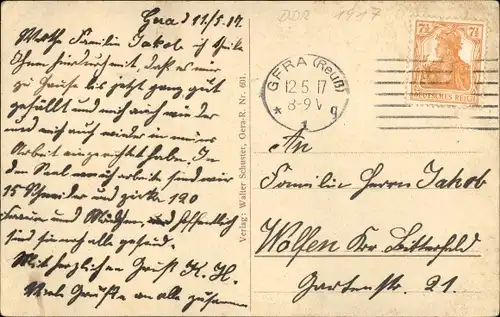 Gera d 11/5.17.
Werthe Familie Jakob ich theile
Ihnen hierdurch mit, daß es mir
zu Hause bis jetzt ganz gut
gefällt und mich auch wieder
und mich auch wieder in meine
Arbeit eingerichtet habe. In
den Saal wo ich arbeite sind wir
15 Schneider und zirka 120
Frauen und Mädchen, und hoffentlich
sind sie noch alle gesund.
Mit herzlichen Gruß K. H.
Viele Grüße an alle zusammen
Verlag: Walter Schuster, Gera-R. Nr. 601.
DDR 1917
GERA (Reuß)
12.5.17
8-9 V
* 1 g
7½ 7½
DEUTSCHES REICH
An
Familie Herrn Jakob
Wolfen Krr Bitterfeld
Gartenstr. 21.